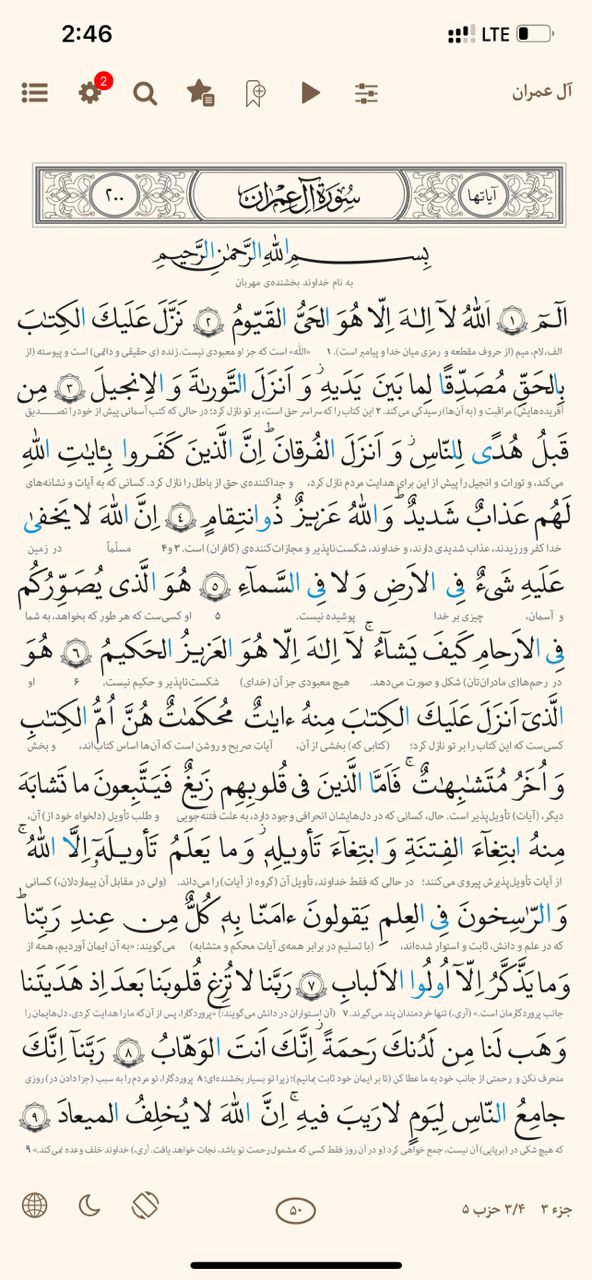 2:46 LTE
2
آل عمران
آیاتها سُورَةُ آلِ عِمرَان ۲۰۰
بِسمِ اللّٰهِ الرَّحمٰنِ الرَّحیمِ
به نام خداوند بخشنده‌ی مهربان
الٓـمٓ ﴿۱﴾ اَللّٰهُ لآ اِلـٰهَ اِلّا هُوَ الحَیُّ القَیّومُ ﴿۲﴾ نَزَّلَ عَلَیكَ الكِتٰبَ
الف، لام، میم (از حروف مقطعه و رمزی میان خدا و پیامبر است). ۱ «الله» است که جز او معبودی نیست. زنده (ی حقیقی و دائمی) است و پیوسته (از
بِالحَقِّ مُصَدِّقًا لِما بَینَ یَدَیهِ ۗ وَ اَنزَلَ التَّورىٰةَ وَ الاِنجیلَ ﴿۳﴾ مِن
آفریده‌هایش) مراقبت و (به آن‌ها) رسیدگی می‌کند. ۲ این کتاب را که سراسر حق است، بر تو نازل کرد؛ در حالی که کتب آسمانی پیش از خود را تصـــدیق
قَبلُ هُدًى لِلنّاسِ ۗ وَ اَنزَلَ الفُرقانَ ۗ اِنَّ الَّذینَ كَفَروا بِـٔایٰتِ اللّٰهِ
می‌کند، و تورات و انجیل را پیش از این برای هدایت مردم نازل کرد، و جداکننده‌ی حق از باطل را نازل کرد. کسانی که به آیات و نشانه‌های
لَهُم عَذابٌ شَدیدٌ ۗ وَ اللّٰهُ عَزیزٌ ذُو انتِقامٍ ﴿۴﴾ اِنَّ اللّٰهَ لا یَخفىٰ
خدا کفر ورزیدند، عذاب شدیدی دارند، و خداوند، شکست‌ناپذیر و مجازات‌کننده‌ی (کافران) است. ۳ و ۴ مسلّماً در زمین
عَلَیهِ شَیءٌ فِی الاَرضِ وَ لا فِی السَّمآءِ ﴿۵﴾ هُوَ الَّذی یُصَوِّرُكُم
و آسمان، چیزی بر خدا پوشیده نیست. ۵ او کسی‌ست که هر طور که بخواهد، به شما
فِی الاَرحامِ كَیفَ یَشآءُ ۚ لآ اِلـٰهَ اِلّا هُوَ العَزیزُ الحَكیمُ ﴿۶﴾ هُوَ
در رحم‌ها(ی مادران‌تان) شکل و صورت می‌دهد. هیچ معبودی جز آن (خدای) شکست‌ناپذیر و حکیم نیست. ۶ او
الَّذیٓ اَنزَلَ عَلَیكَ الكِتٰبَ مِنهُ ءایٰتٌ مُحكَمٰتٌ هُنَّ اُمُّ الكِتٰبِ
کسی‌ست که این کتاب را بر تو نازل کرد؛ (کتابی که) بخشی از آن، آیات صریح و روشن است که آن‌ها اساس کتاب‌اند، و بخش
وَ اُخَرُ مُتَشٰبِهٰتٌ ۚ فَاَمَّا الَّذینَ فی قُلوبِهِم زَیغٌ فَیَتَّبِعونَ ما تَشابَهَ
دیگر، (آیات) تأویل‌پذیر است. حال، کسانی که در دل‌هایشان انحرافی وجود دارد، به علت فتنه‌جویی و طلب تأویل (دلخواه خود از) آن،
مِنهُ ابتِغآءَ الفِتنَةِ وَ ابتِغآءَ تَأویلِهٖ ۗ وَ ما یَعلَمُ تَأویلَهٗٓ اِلَّا اللّٰهُ ۚ
از آیات تأویل‌پذیرش پیروی می‌کنند؛ در حالی که فقط خداوند، تأویل آن (گروه از آیات) را می‌داند. (ولی در مقابل آن بیماردلان،) کسانی
وَ الرّٰسِخونَ فِی العِلمِ یَقولونَ ءامَنّا بِهٖ كُلٌّ مِن عِندِ رَبِّنا ۗ
که در علم و دانش، ثابت و استوار شده‌اند، (با تسلیم در برابر همه‌ی آیات محکم و متشابه) می‌گویند: «به آن ایمان آوردیم، همه از
وَ ما یَذَّكَّرُ اِلّآ اُولُوا الاَلبابِ ﴿۷﴾ رَبَّنا لا تُزِغ قُلوبَنا بَعدَ اِذ هَدَیتَنا
جانب پروردگارمان است.» (آری،) تنها خردمندان پند می‌گیرند. ۷ (آن استواران در دانش می‌گویند:) «پروردگارا، پس از آن‌که ما را هدایت کردی، دل‌هایمان را
وَ هَب لَنا مِن لَدُنكَ رَحمَةً ۚ اِنَّكَ اَنتَ الوَهّابُ ﴿۸﴾ رَبَّنآ اِنَّكَ
منحرف نکن و رحمتی از جانب خود به ما عطا کن (تا بر ایمان خود ثابت بمانیم)؛ زیرا تو بسیار بخشنده‌ای؛ ۸ پروردگارا، تو مردم را به سبب (جزا دادن در) روزی
جامِعُ النّاسِ لِیَومٍ لا رَیبَ فیهِ ۚ اِنَّ اللّٰهَ لا یُخلِفُ المیعادَ ﴿۹﴾
که هیچ شکی در (برپایی) آن نیست، جمع خواهی کرد (و در آن روز فقط کسی که مشمول رحمت تو باشد، نجات خواهد یافت. آری،) خداوند خلف وعده نمی‌کند.» ۹
جزء ۳ ۳/۴ حزب ۵
۵۰